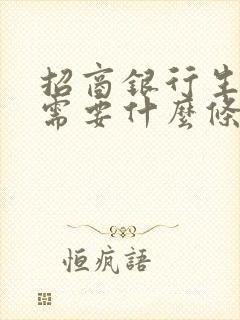 招商銀行生
需要什麼條
恒疯語